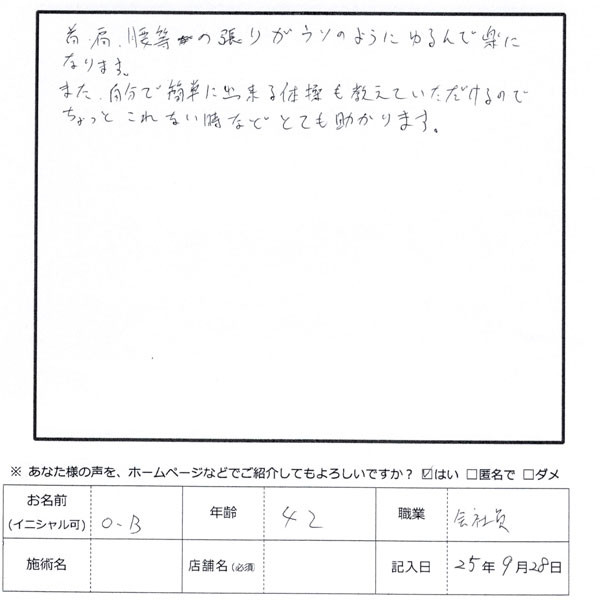 首、肩、腰等の張りがウソのようにゆるんで楽に
なります。
また、自分で簡単に出来る体操も教えていただけるので
ちょっと これない時など とても助かります。
※ あなた様の声を、ホームページなどでご紹介してもよろしいですか？ ☑はい □匿名で □ダメ
お名前 (イニシャル可) O-B 年齢 42 職業 会社員
施術名 店舗名(必須) 記入日 25年9月28日